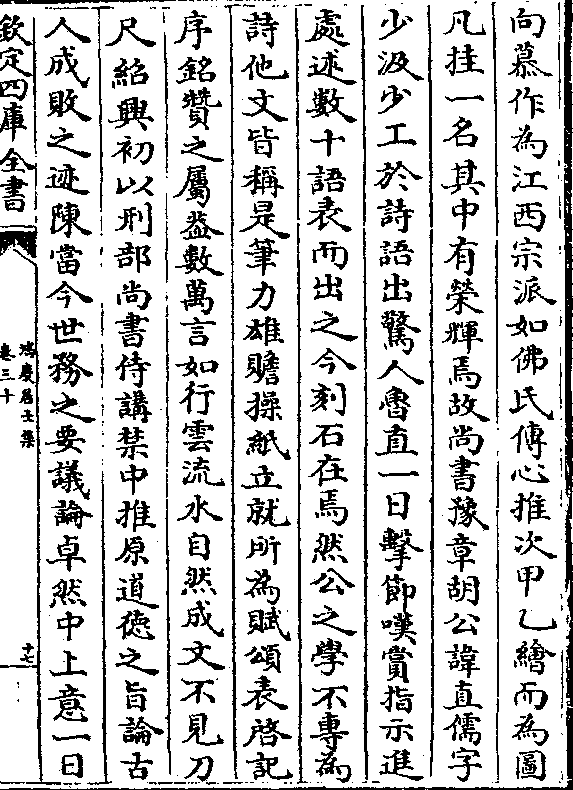 向慕作為江西宗派如佛氏傳心推次甲乙繪而為圖
凡挂一名其中有榮輝焉故尚書豫章胡公諱直儒字
少汲少工於詩語出驚人魯直一日擊節嘆賞指示進
處述數十語表而出之今刻石在焉然公之學不專為
詩他文皆稱是筆力雄贍操紙立就所為賦頌表啓記
序銘贊之屬益數萬言如行雲流水自然成文不見刀
尺紹興初以刑部尚書侍講禁中推原道德之旨論古
人成敗之迹陳當今世務之要議論卓然中上意一日
欽定四庫全書
鴻慶居士集
卷三十
十七